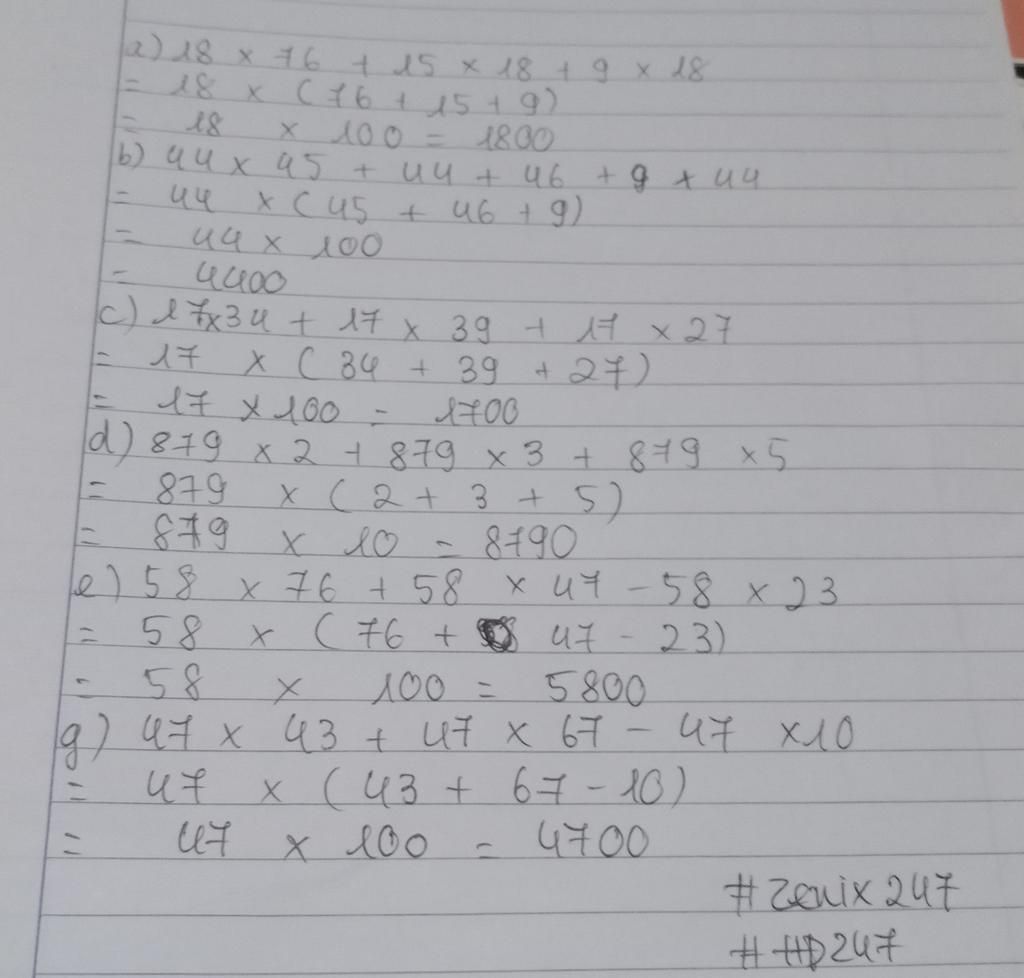 a) 18 × 76 + 15 × 18 + 9 × 18
= 18 × (76 + 15 + 9)
= 18 × 100 = 1800
b) 44 × 45 + 44 + 46 + 9 + 44
= 44 × (45 + 46 + 9)
= 44 × 100
= 4400
c) 17×34 + 17 × 39 + 17 × 27
= 17 × (34 + 39 + 27)
= 17 × 100 = 1700
d) 879 × 2 + 879 × 3 + 879 × 5
= 879 × (2 + 3 + 5)
= 879 × 10 = 8790
e) 58 × 76 + 58 × 47 - 58 × 23
= 58 × (76 + 47 - 23)
= 58 × 100 = 5800
g) 47 × 43 + 47 × 67 - 47 ×10
= 47 × (43 + 67 - 10)
= 47 × 100 = 4700
# zenix 247
# HD247